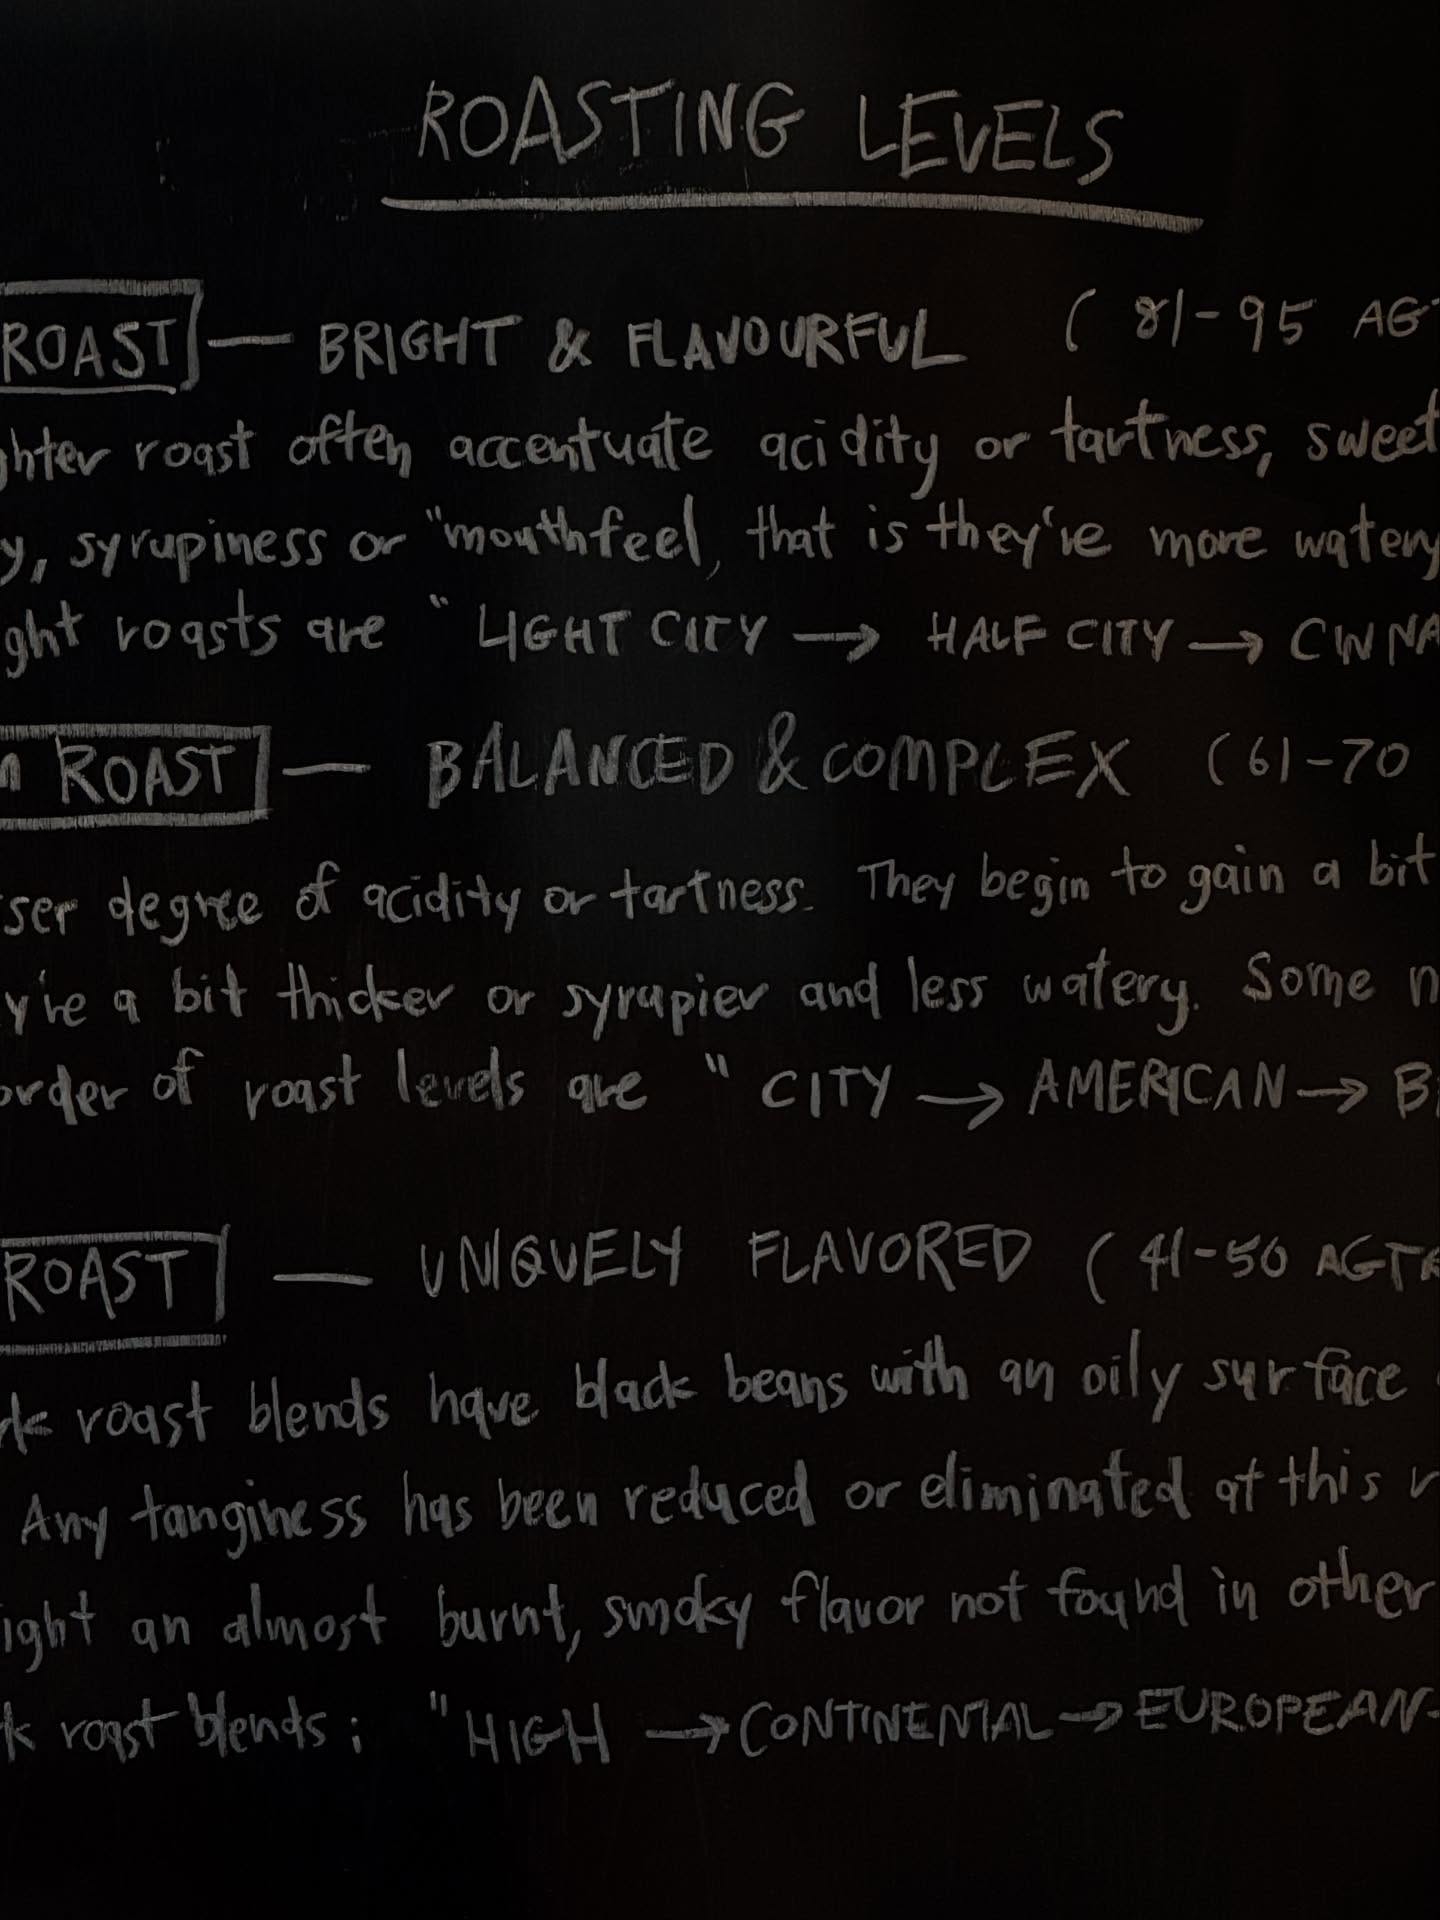 ROASTING LEVELS
ROAST — BRIGHT & FLAVOURFUL ( 81-95 AG
ghter roast often accentuate acidity or tartness, sweet
y, syrupiness or "mouthfeel, that is they're more watery
ght roasts are "LIGHT CITY → HALF CITY → CINNA
ROAST — BALANCED & COMPLEX (61-70
ser degree of acidity or tartness. They begin to gain a bit
y're a bit thicker or syrupier and less watery. Some n
order of roast levels are "CITY → AMERICAN → B
ROAST — UNIQUELY FLAVORED (41-50 AGTR
rk roast blends have black beans with an oily surface
Any tanginess has been reduced or eliminated at this r
ight an almost burnt, smoky flavor not found in other
k roast blends: "HIGH → CONTINENTAL → EUROPEAN-